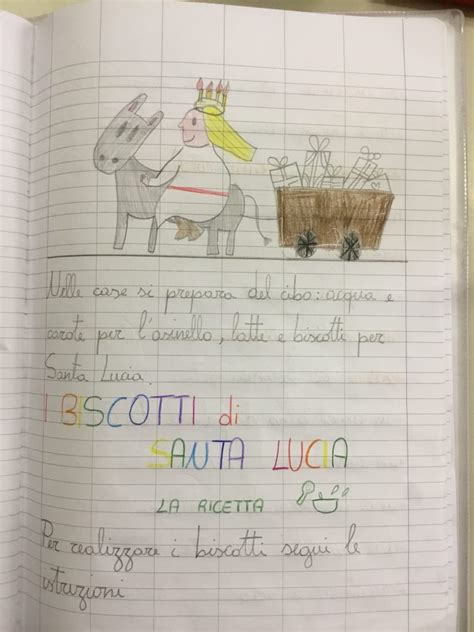 Nelle case si prepara del cibo: acqua e
carote per l'asinello, latte e biscotti per
Santa Lucia.
I BISCOTTI di
SANTA LUCIA
LA RICETTA
Per realizzare i biscotti segui le
istruzioni